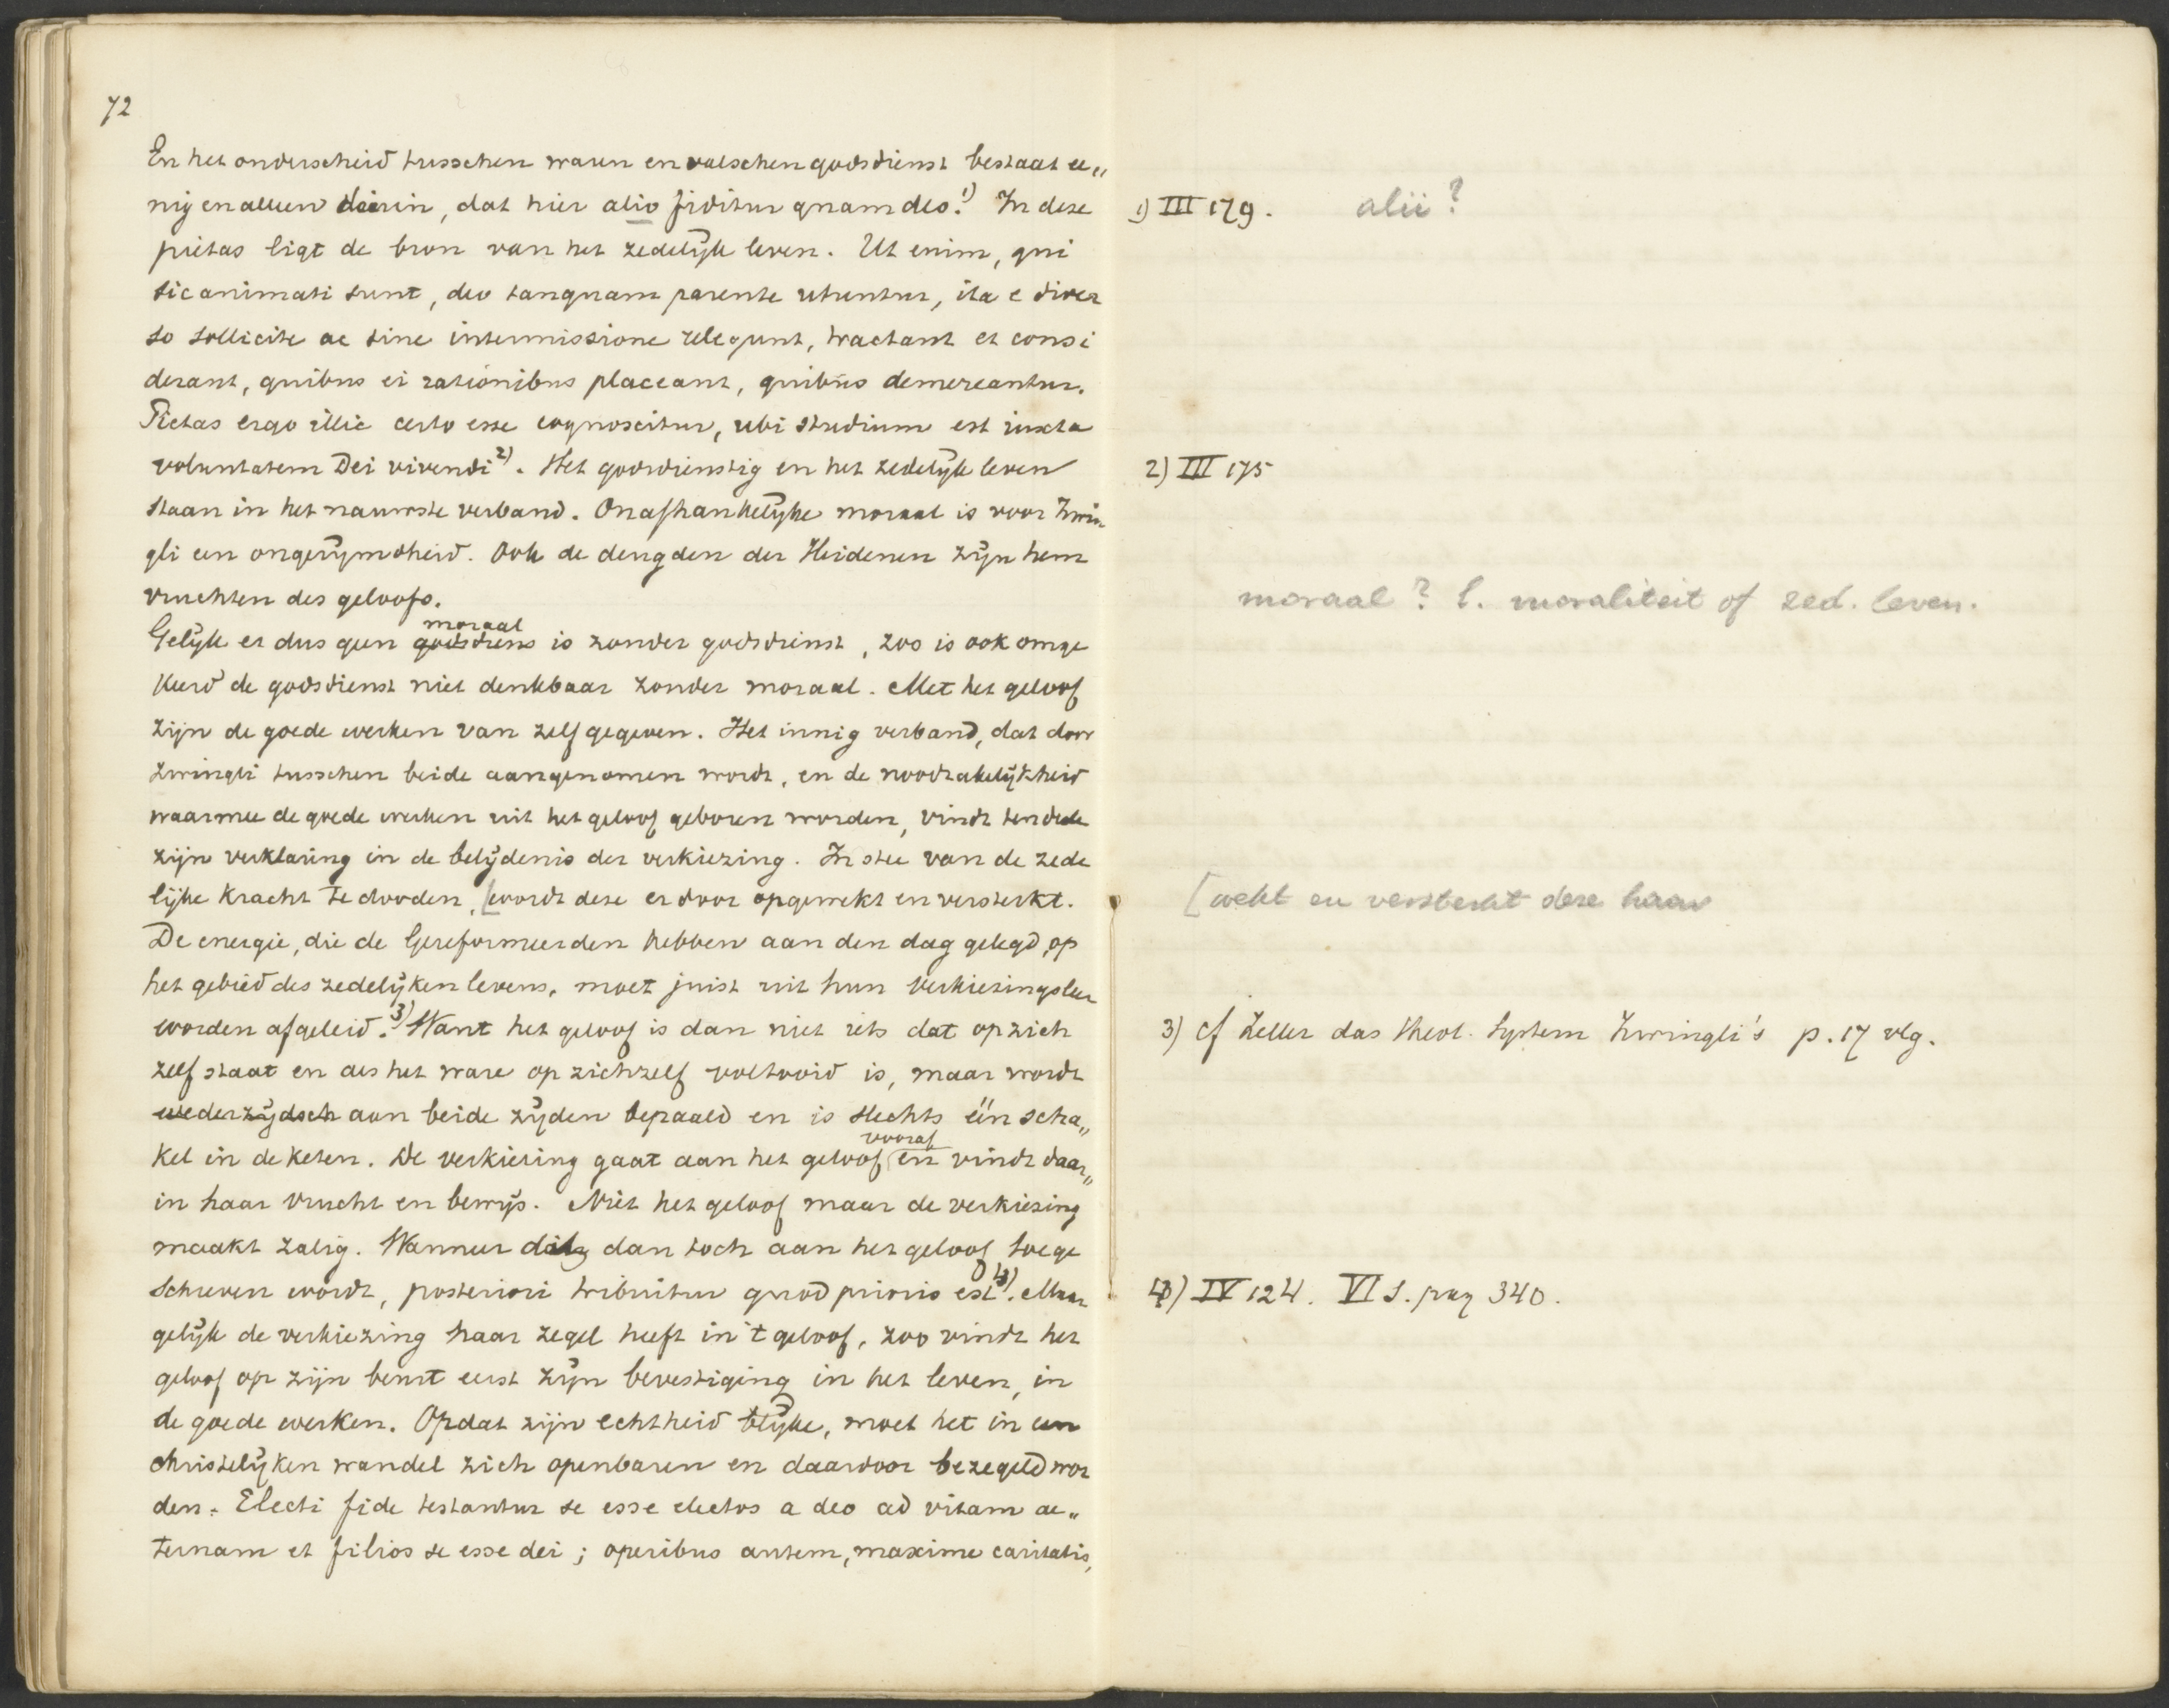 72
En het onderscheid tusschen waren en valschen godsdienst bestaat ee„
nig en alleen daarin, dat hier alio fiditur quam deo.1) In deze
pietas ligt de bron van het zedelijk leven. Ut enim, qui
sic animati sunt, deo tanquam parente utuntur, ita e diver
so sollicite ac sine intermissione relegunt, tractant et consi
derant, quibus ei rationibus placeant, quibus demereantur.
Pietas ergo illic certo esse cognoscitur, ubi studium est iuxta
voluntatem Dei vivendi2). Het godsdienstig en het zedelijk leven
staan in het nauwste verband. Onafhankelijke moraal is voor Zwin
gli een ongerijmdheid. Ook de deugden der Heidenen zijn hem
vruchten des geloofs.
moraal
Gelijk er dus geen godsdiens is zonder godsdienst, zoo is ook omge
keerd de godsdienst niet denkbaar zonder moraal. Met het geloof
zijn de goede werken van zelf gegeven. Het innig verband, dat door
Zwingli tusschen beide aangenomen wordt, en de noodzakelijkheid
waarmee de goede werken uit het geloof geboren worden, vindt ten deele
zijn verklaring in de belijdenis der verkiezing. In stee van de zede
lijke kracht te dooden, [wordt deze er door opgewekt en versterkt.
De energie, die de Gereformeerden hebben aan den dag gelegd op
het gebied des zedelijken levens, moet juist uit hun verkiezingsleer
worden afgeleid.3) Want het geloof is dan niet iets dat op zich
zelf staat en als het ware op zichzelf voltooid is, maar wordt
wederzijdsch aan beide zijden bepaald en is slechts één scha„
kel in de keten. De verkiezing gaat aan het geloof vooraf en vindt daar„
in haar vrucht en bewijs. Niet het geloof maar de verkiezing
maakt zalig. Wanneer dit dan toch aan het geloof toege
schreven wordt, posteriori tribuitur quod prioris est4). Maar
gelijk de verkiezing haar zegel heeft in 't geloof, zoo vindt het
geloof op zijn beurt eerst zijn bevestiging in het leven, in
de goede werken. Opdat zijn echtheid blijke, moet het in een
christelijken wandel zich openbaren en daardoor bezegeld wor
den. Electi fide testantur se esse electos a deo ad vitam ae„
ternam et filios se esse dei; operibus autem, maxime caritatis,
1) III 179. alii?
2) III 175
moraal? l. moraliteit of zed. leven.
[wekt en versterkt deze haar
3) cf Zeller das theol. System Zwingli's p. 17 vlg.
4) IV 124. VI 1. pag 340.